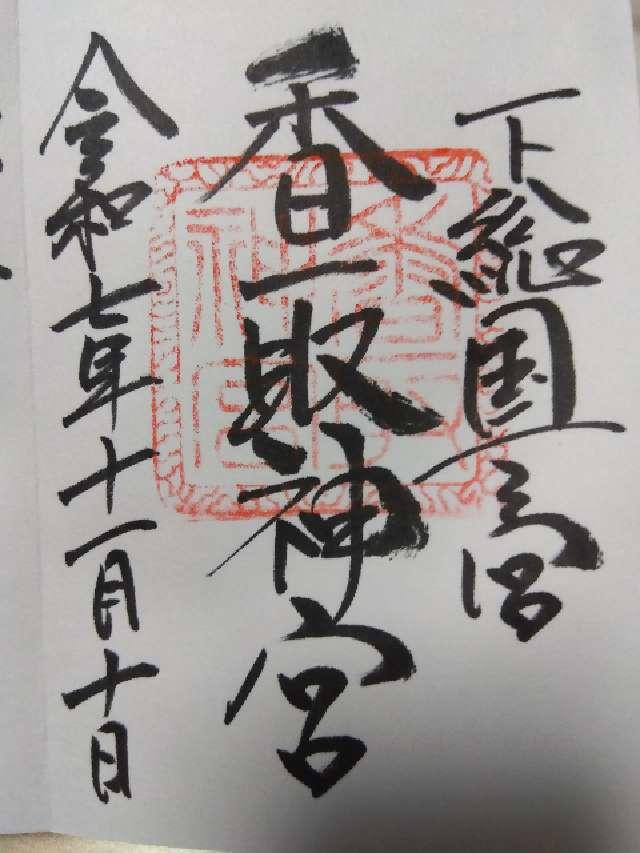 下総国一宮
香取神宮
令和七年十一月十日